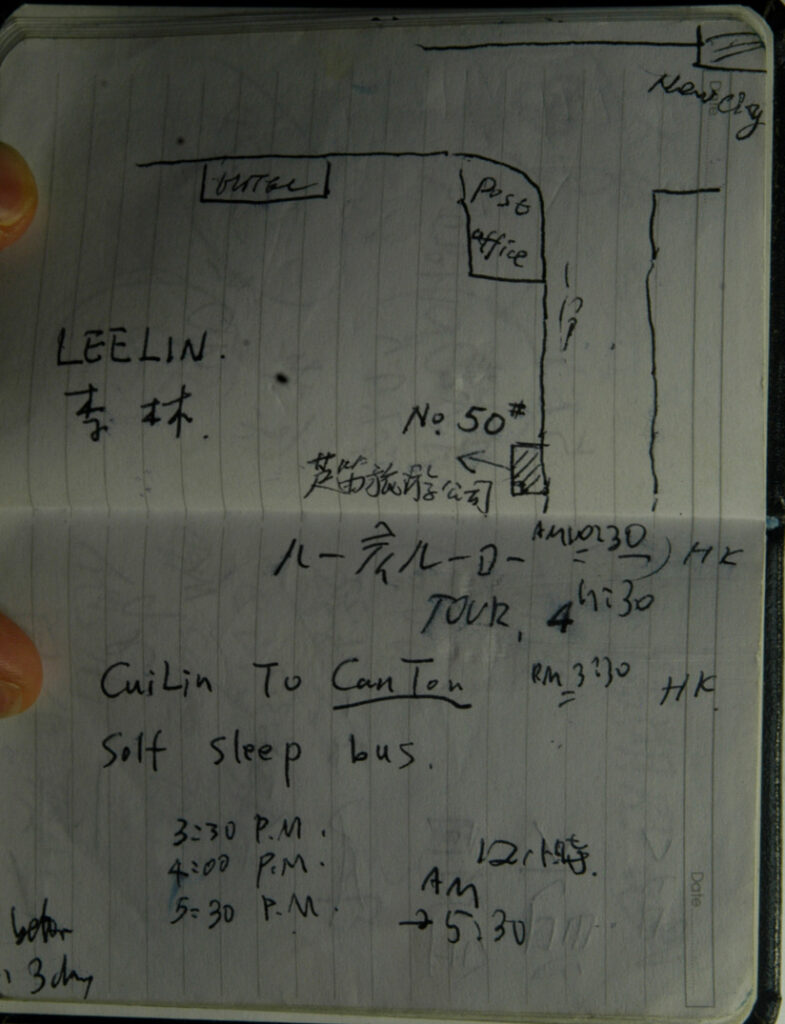 New City
HOTEL
Post
office
LEELIN.
李 林.
No. 50#
芦笛旅游公司
HK
TOUR, 4
CuiLin To CanTon
3:30 HK
Solf sleep bus.
3:30 P.M.
4:00 P.M.
5:30 P.M.
12小时.
AM
→ 5:30
3 day
Date